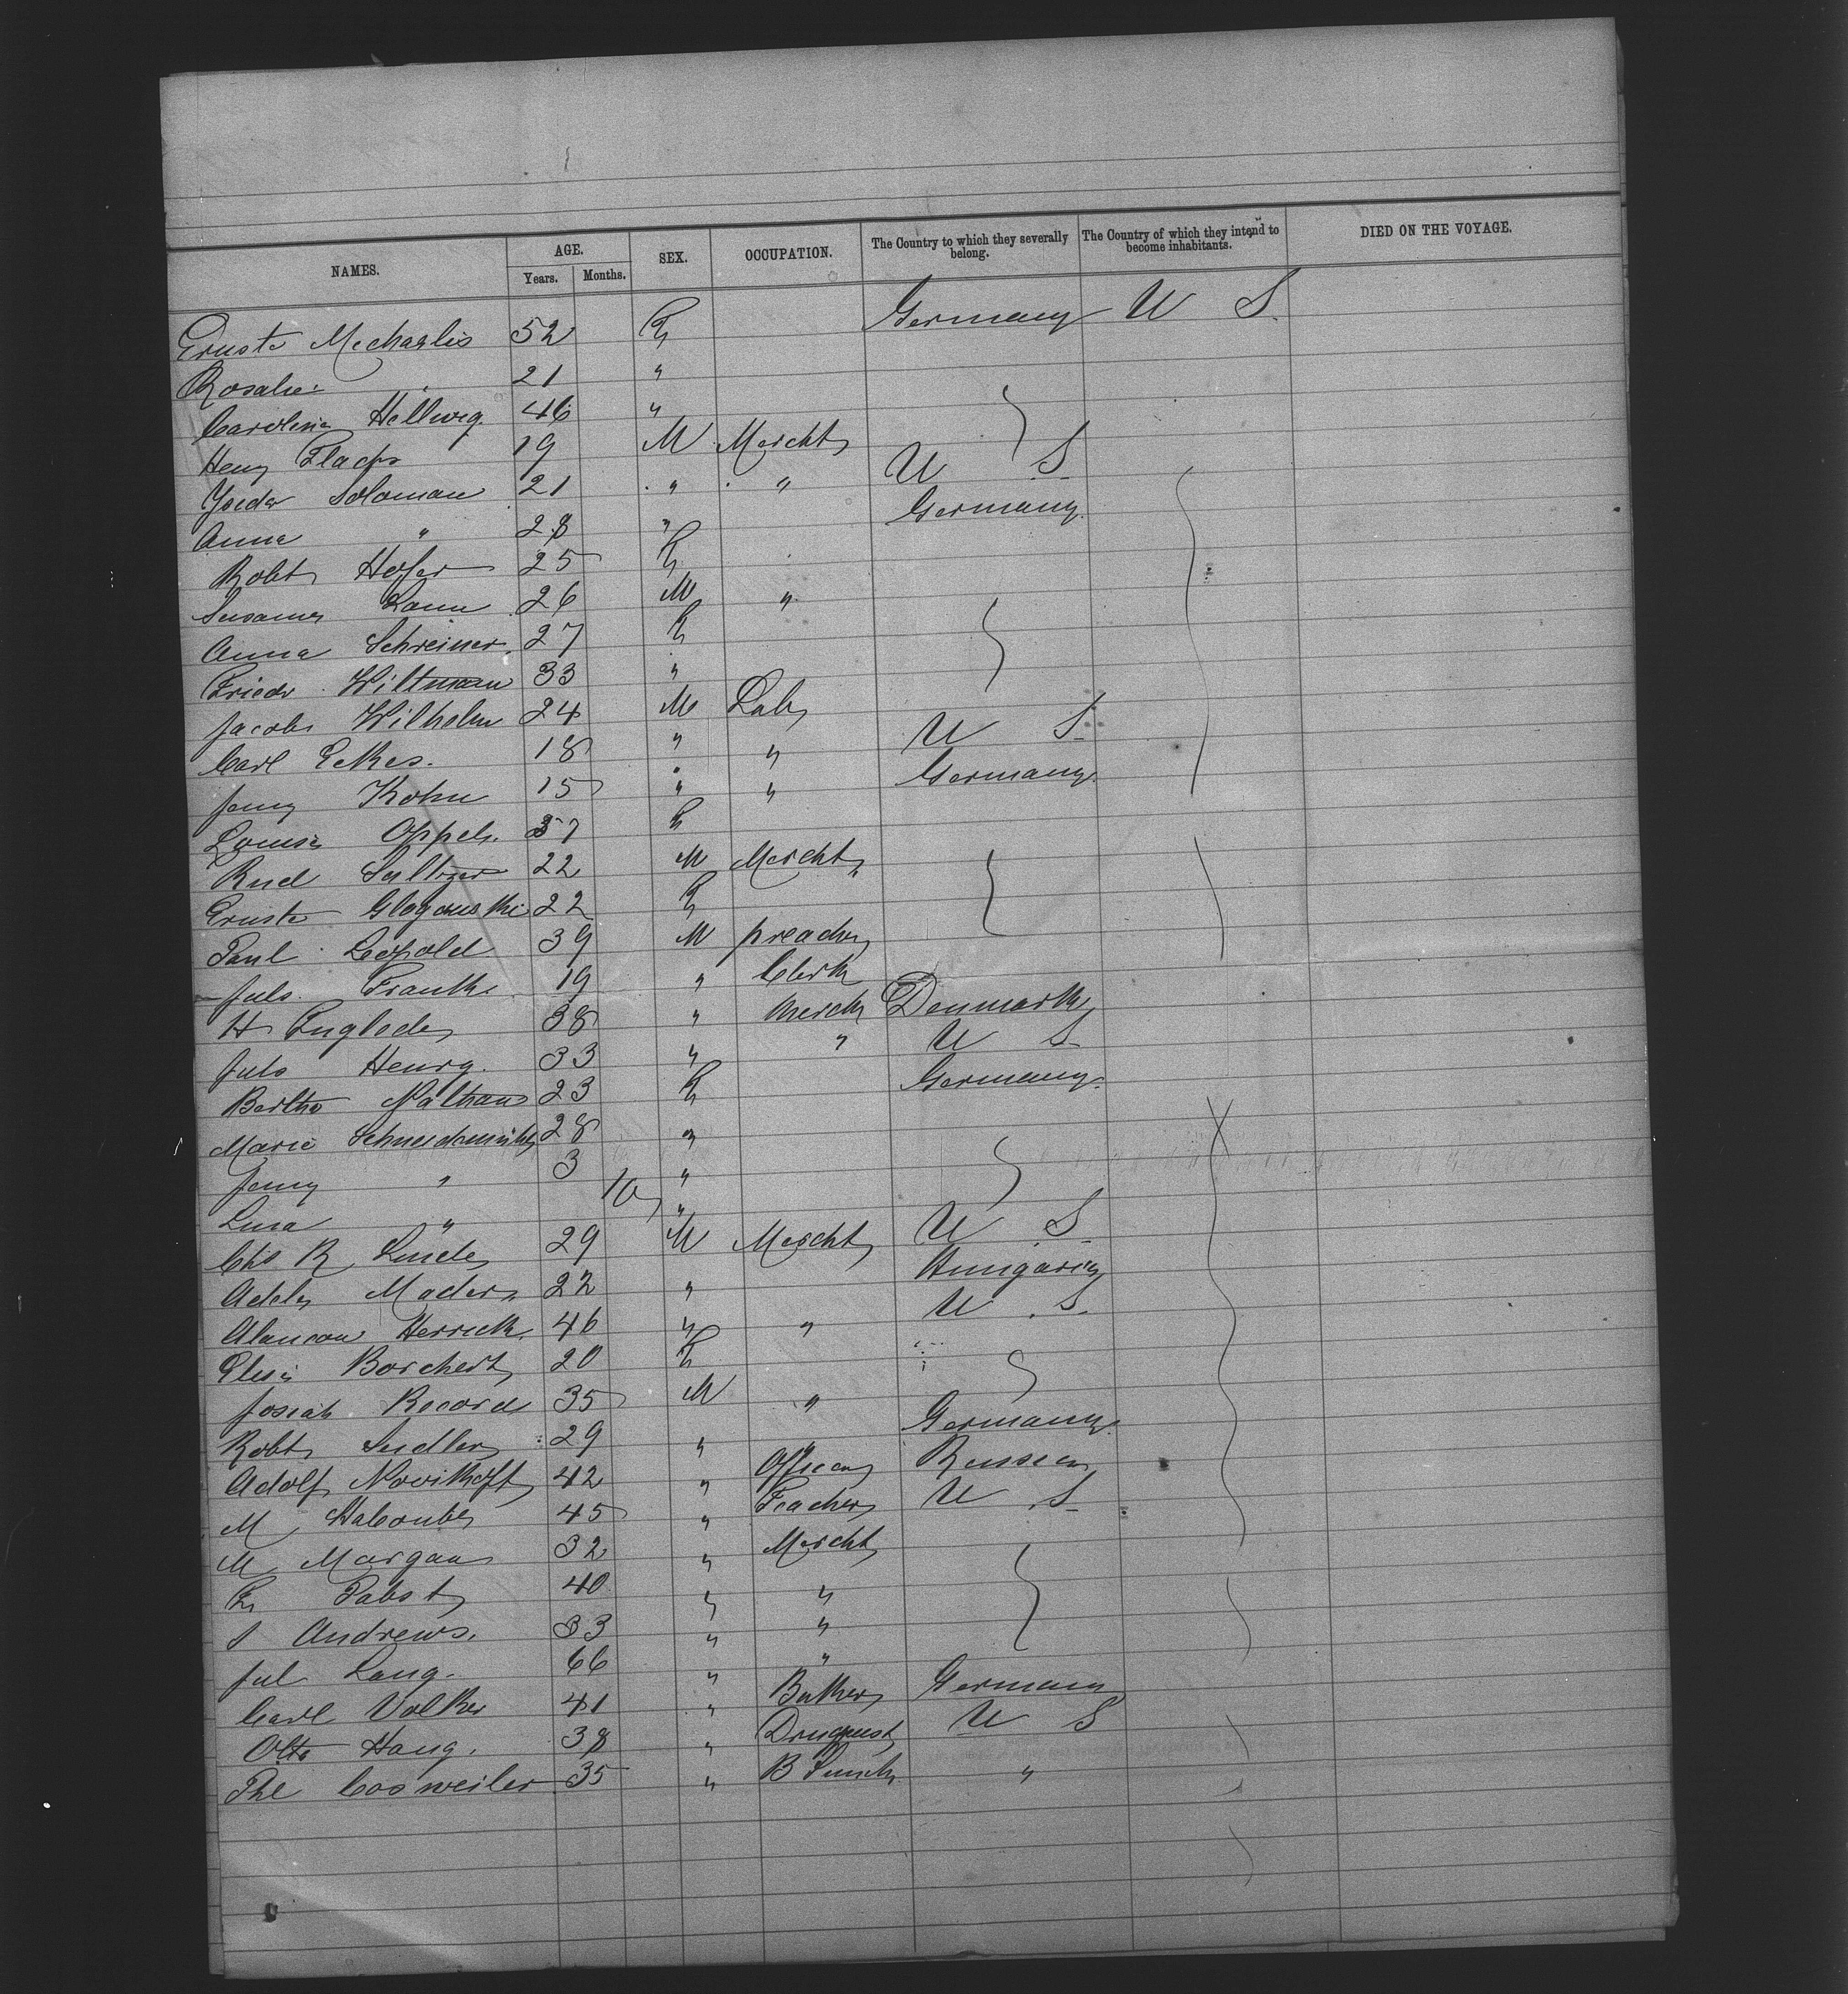 NAMES. AGE. SEX. OCCUPATION. The Country to which they severally belong. The Country of which they intend to become inhabitants. DIED ON THE VOYAGE.
Years. Months.
Ernste Mechaelis 52 F Germany U S
Rosalie " 21 "
Carolina Hellweg 46 "
Henry Flachs 19 M Mercht U S
Solomon 21 " " Germany
Anna " 28 "
Robt Hofer 25 F
Susanna Lann 26 M "
Anna Schreiner 27 F
Friedr Wiltman 33 "
Jacob Wilhelm 24 M Lab U S
Carl Eckes. 18 " " Germany
Jenny Kohn 15 " "
Louise Oppeh. 37 F
Rud Saltzer 22 M Mercht
Ernste Glogowski 22 F
Paul Leopold 39 M preacher
Juls. Frank 19 " Clerk
H Englede 38 " Merch Denmark
Juls Henry 33 " " U S
Bertha Nathan 23 F Germany
Marie 28 "
Jenny " 3 "
Lina " 10 "
Chs R Linde 29 M Mercht U S
Adele Mader 22 " Hungaria
Alanson Herrick 46 " " U S
Elise Borchert 20 F
Josiah Record 35 M "
Robt Sudler 29 " " Germany
Adolf Novikoff 42 " Officer Russia
M Halcomb 45 " Teacher U S
M Morgan 32 " Mercht
F Pabst 40 " "
S Andrews. 33 " "
Jul Lang. 66 " "
Carl Volker 41 " Butcher Germany
Otto Haug. 38 " Druggist U S
Phl Cosweiler 35 " B Smith "